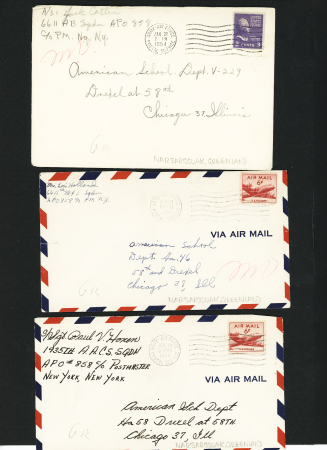 6611 AB Sqdn APO 858
C/o P.M. Ny. Ny.
JAN 21
1954
3 CENTS 3
American School, Dept. V-229
Drexel at 58th
Chicago 37, Illinois
NARSARSSUAK, GREENLAND
AIR MAIL
6¢
APO 858 c/o P.M. N.Y.
VIA AIR MAIL
American School
Dept.
58th and Drexel
Chicago 37, Ill
NARSARSSUAK, GREENLAND
AIR MAIL
6¢
S/Sgt. Paul V. Hoxen
1935TH A.A.C.S. SQDN
APO# 858 C/O POSTMASTER
NEW YORK, NEW YORK
VIA AIR MAIL
American Sch Dept
Ha 58 Drexel at 58TH
Chicago 37, Ill
NARSARSSUAK, GREENLAND